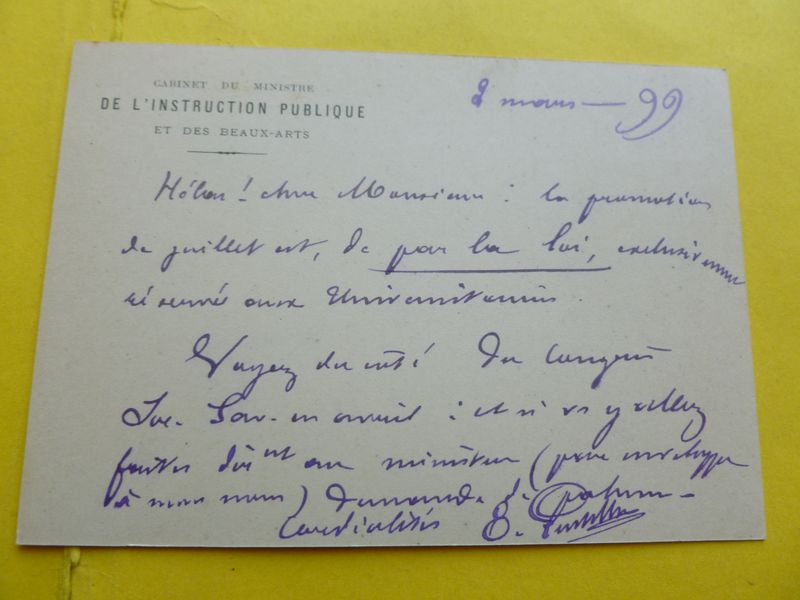 CABINET DU MINISTRE
DE L'INSTRUCTION PUBLIQUE
ET DES BEAUX-ARTS
2 mars — 99
Hélas! cher Monsieur : la promotion
de juillet est, de par la loi, exclusivement
réservée aux Universitaires.
Voyez du côté du Congrès
Soc. Sav. en avril : et si vs y allez
faites au ministre (sous enveloppe
à mon nom) demande d. palmes —
Cordialités E.